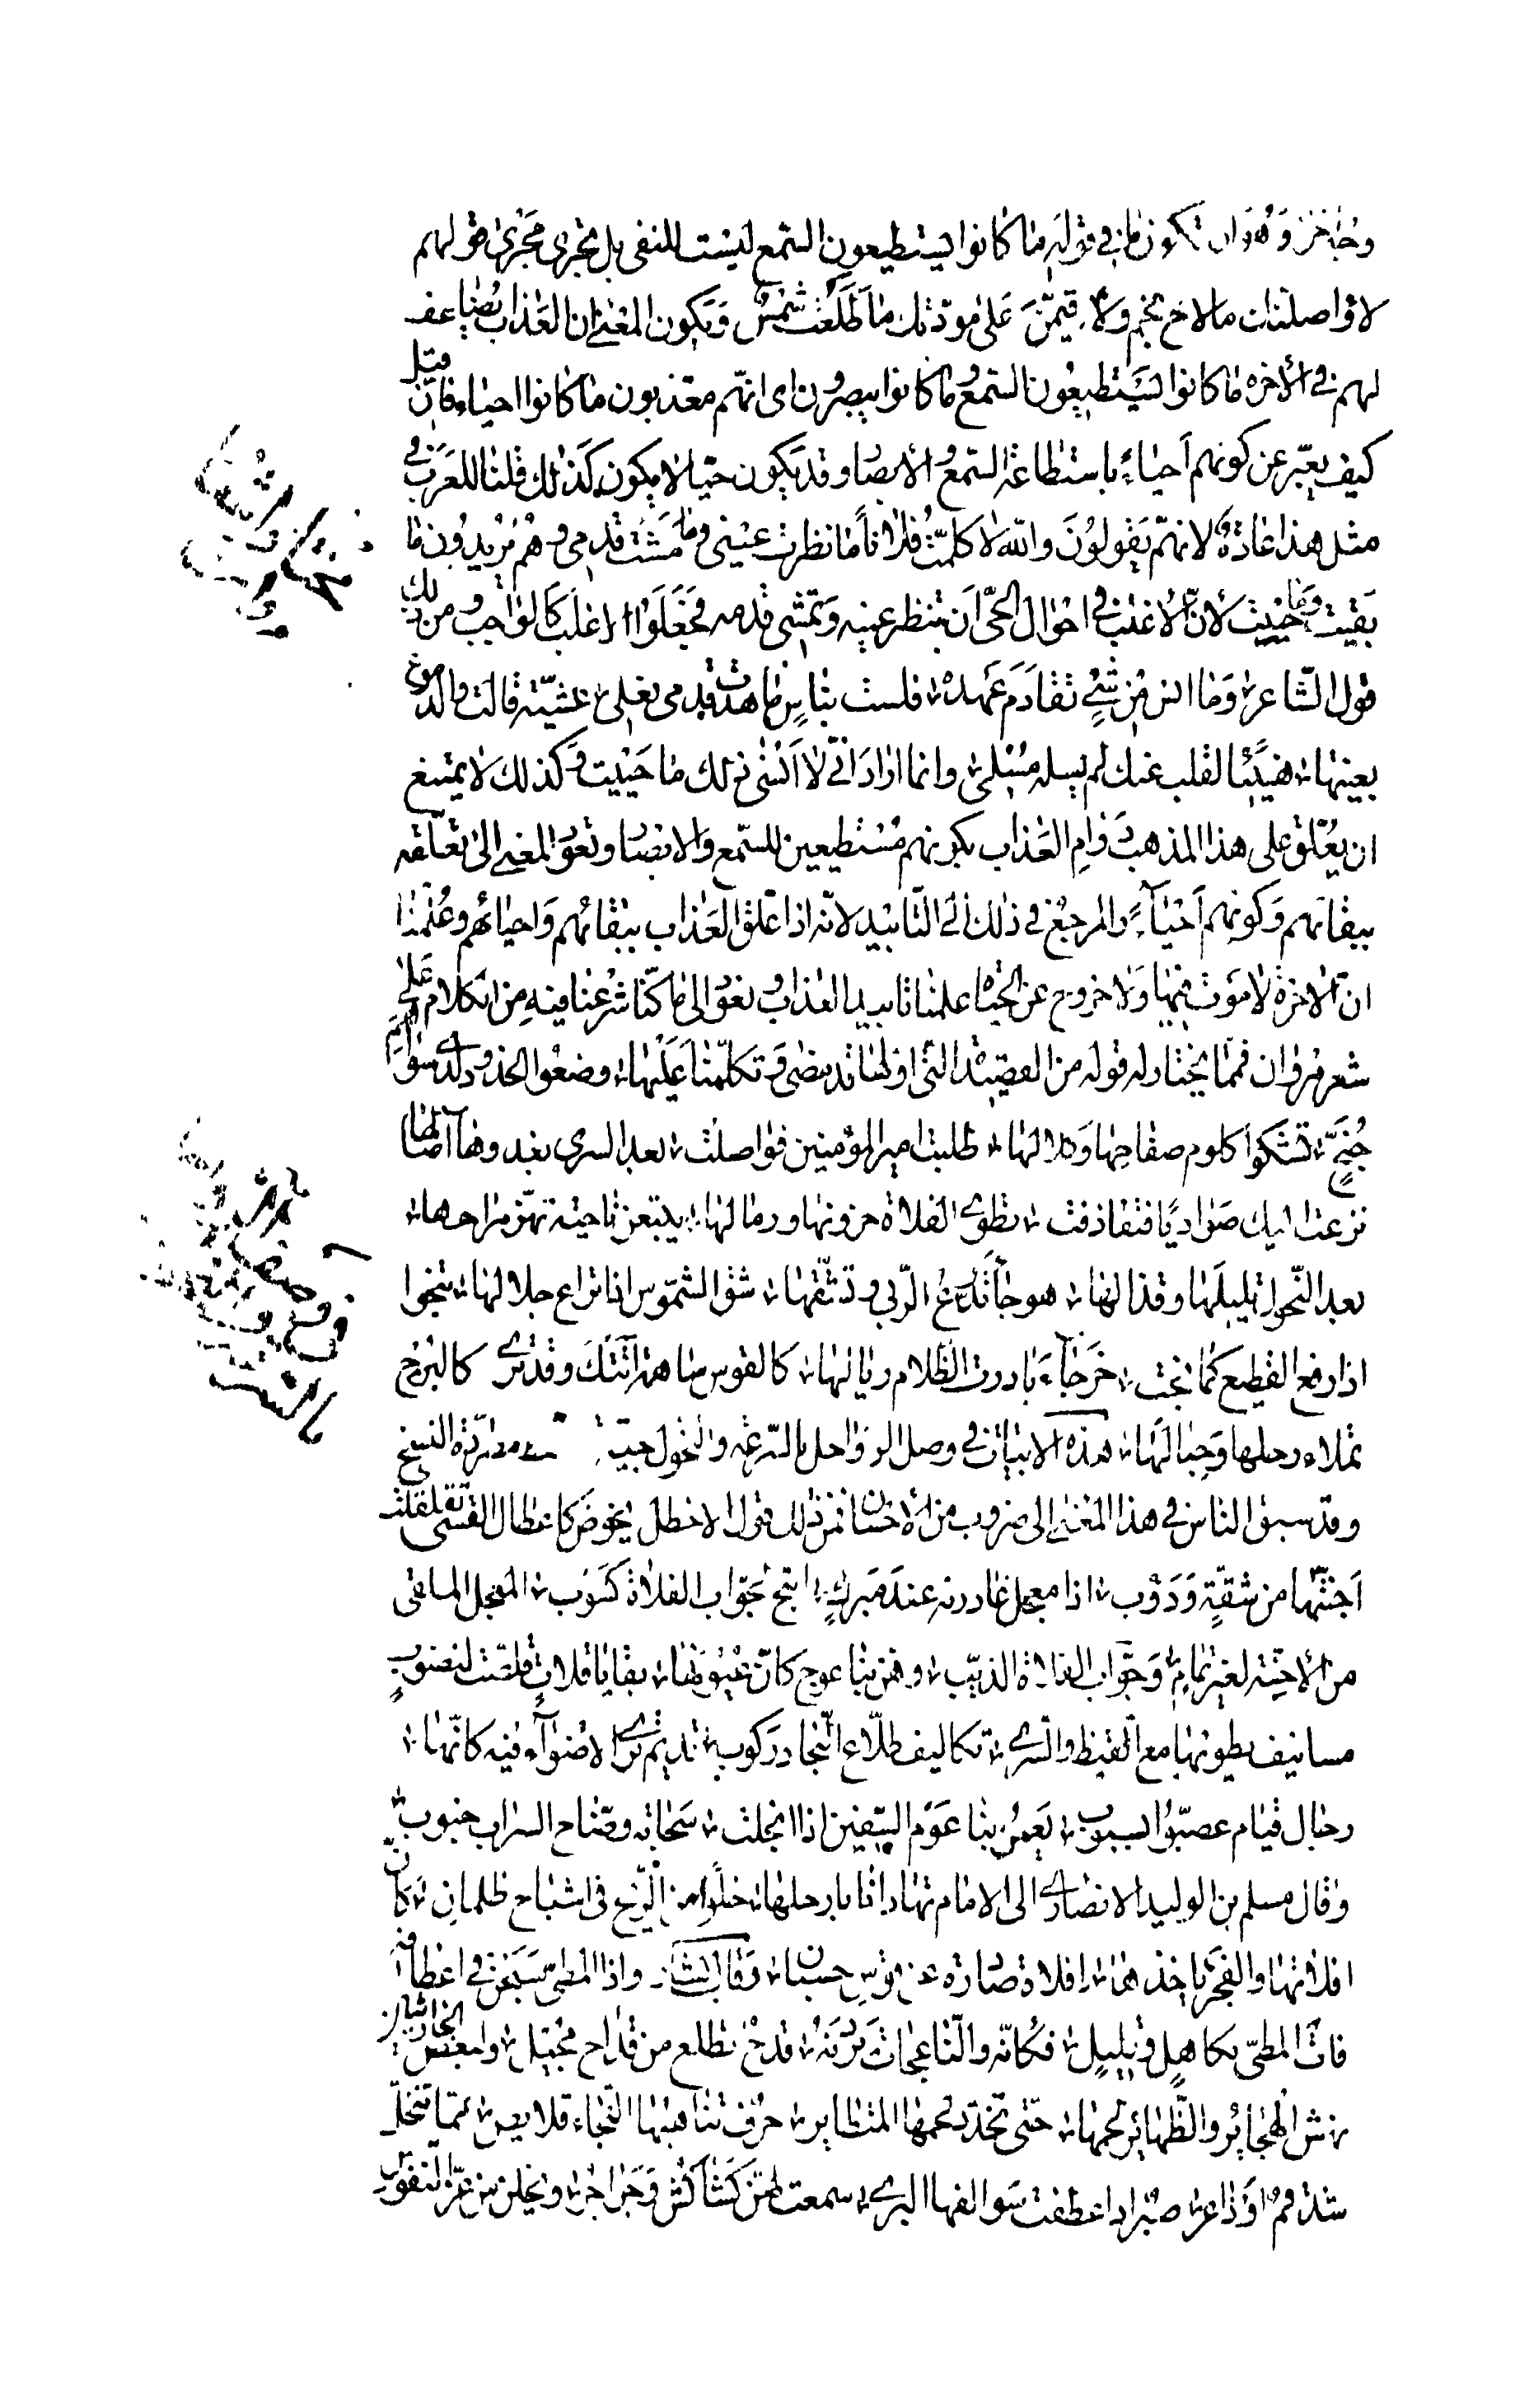 وجه اخر وهو ان تكون ما في قوله ما كانوا يستطيعون السمع ليست للنفى بل تجرى مجرى قولهم
لاواصلنك ما لاح نجم ولاقيمن على مودتك ما طلعت شمس ويكون المعنى ان العذاب يضاعف
لهم في الاخرة ما كانوا يستطيعون السمع وما كانوا يبصرون اى انهم معذبون ما كانوا احياء فان قيل
كيف يعبر عن كونهم احياء باستطاعة السمع والابصار وقد يكون حيا لا يكون كذلك قلنا للعرب في
مثل هذا عادة لانهم يقولون والله لا كلمت فلانا ما نظرت عيني وما مشت قدمي وهم يريدون ما
بقيت وما حييت لان الاغلب في احوال الحي ان تنظر عينه وتمشي قدمه فجعلوا الاغلب كالواجب ومن ذلك
قول الشاعر وما انس من شئ تقادم عهده فلست بناس ما هدت قدمي نعلي عشية قالت والدموع
بعينها هنيئا لقلب عنك لم يسله مسلي وانما اراد اني لا انسى ذلك ما حييت وكذلك لا يمتنع
ان يعلق على هذا المذهب دوام العذاب بكونهم مستطيعين للسمع والابصار وتعود المعنى الى تعلقه
ببقائهم وكونهم احياء والمرجع في ذلك الى التابيد لانه اذا علق العذاب ببقائهم واحيائهم وعلمنا
ان الاخرة لا موت فيها ولا خروج عن الحياة علمنا تابيد العذاب ونعود الى ما كنا شرعنا فيه من الكلام على
شعر مروان فمما يختار له قوله من القصيدة التي اولها قد مضى وتكلمنا عليها وضعوا الخدود لدى سواهم
جنح تشكوا كلوم صفاحها وكلالها طلبت امير المؤمنين فواصلت بعد السرى بغدوها اصالها
نزعت اليك صواديا فتقاذفت تطوى الفلاة حزونها ورمالها يتبعن ناجية تهز مراحها
بعد النحول تليلها وقذالها هوجاء تدرع الربى وتشقها شق الشموس اذا تراع جلالها تنجوا
اذا رفع القطيع كما نجت خرجاء بادرت الظلام ريالها كالقوس ساهمة اتتك وقد ترى كالبرج
تملاء رحلها وحبالها هذه الابيات في وصل الرواحل بالسرعة والنحول جيدة
وقد سبق الناس في هذا المعنى الى ضروب من الاحسان فمن ذلك قول الاخطل بخوص كاعطال القسى تقلقلت
اجنتها من شقة ودؤب اذا معجل غادرنه عند مبرك اتيح لجواب الفلاة كسوب المعجل الملقى
من الاجنة لغير تمام وجواب الفلاة الذيب وهن بنا عوج كان عيونها بقايا قلات قلصت لنضوب
مسانيف يطويها مع القيظ والسرى تكاليف طلاع النجاد ركوب قديم ترى الاضواء فيه كانها
رجال قيام عصبوا بسبوب يعمن بنا عوم السفين اذا انجلت سحابة وضاح السراب جنوب
وقال مسلم بن الوليد الانصارى الى الامام تهادانا بارحلها خلق من الريح في اشباح ظلمان كان
افلاتها والفجر ياخذها افلات صادرة عن قوس حسبان وقال بشار واذا المطى سبحن في اعطافه
فات المطى بكاهل وتليل فكانه والناعجات يردنه قدح تطلع من قداح مجيل ولبعض الحارثيين
نهش الهواجر والظهائر لحمها حتى تخدد لحمها المتطاير حرف تناهبها النجاء قلايص مما تنخل
شدقم وذاعر صبر اذا عطفت سوالفها البرى سمعت لهن كشاكش وجراجر وينخلن من عز النفوس